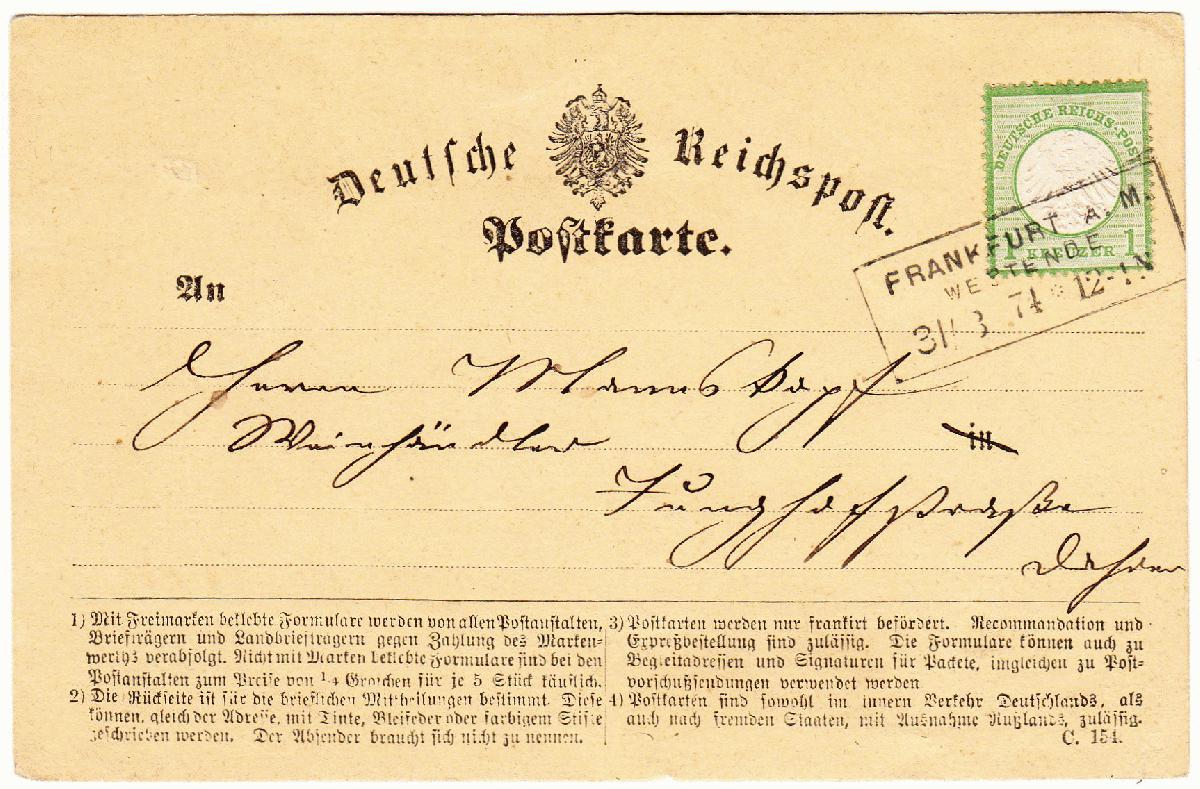 Deutsche Reichspost.
Postkarte.
DEUTSCHE REICHS-POST
1 KREUZER 1
FRANKFURT A. M.
WESTENDE
74 * 12-1N
An
Herrn Mannskopf
Weinhändler in
Junghofstraße
Dahier
1) Mit Freimarken beklebte Formulare werden von allen Postanstalten,
Briefträgern und Landbriefträgern gegen Zahlung des Marken-
werths verabfolgt. Nicht mit Marken beklebte Formulare sind bei den
Postanstalten zum Preise von 1/4 Groschen für je 5 Stück käuflich.
2) Die Rückseite ist für die brieflichen Mittheilungen bestimmt. Diese
können, gleich der Adresse, mit Tinte, Bleifeder oder farbigem Stifte
geschrieben werden. Der Absender braucht sich nicht zu nennen.
3) Postkarten werden nur frankirt befördert. Recommandation und
Expreßbestellung sind zulässig. Die Formulare können auch zu
Begleitadressen und Signaturen für Packete, imgleichen zu Post-
vorschußsendungen verwendet werden
4) Postkarten sind sowohl im innern Verkehr Deutschlands, als
auch nach fremden Staaten, mit Ausnahme Rußlands, zulässig.
C. 154.